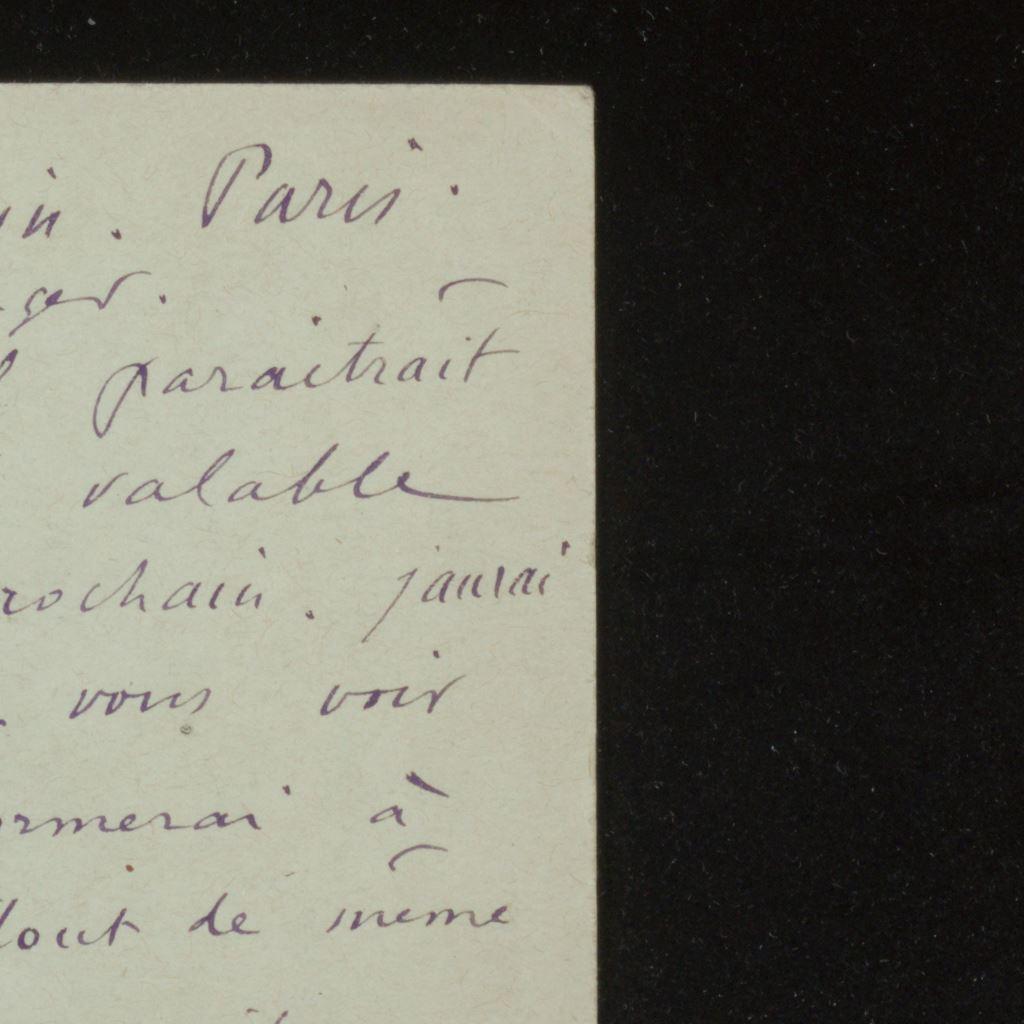 in. Paris.
ger.
paraîtrait
valable
rochain. jaurai
vous voir
ormerai à
tout de même